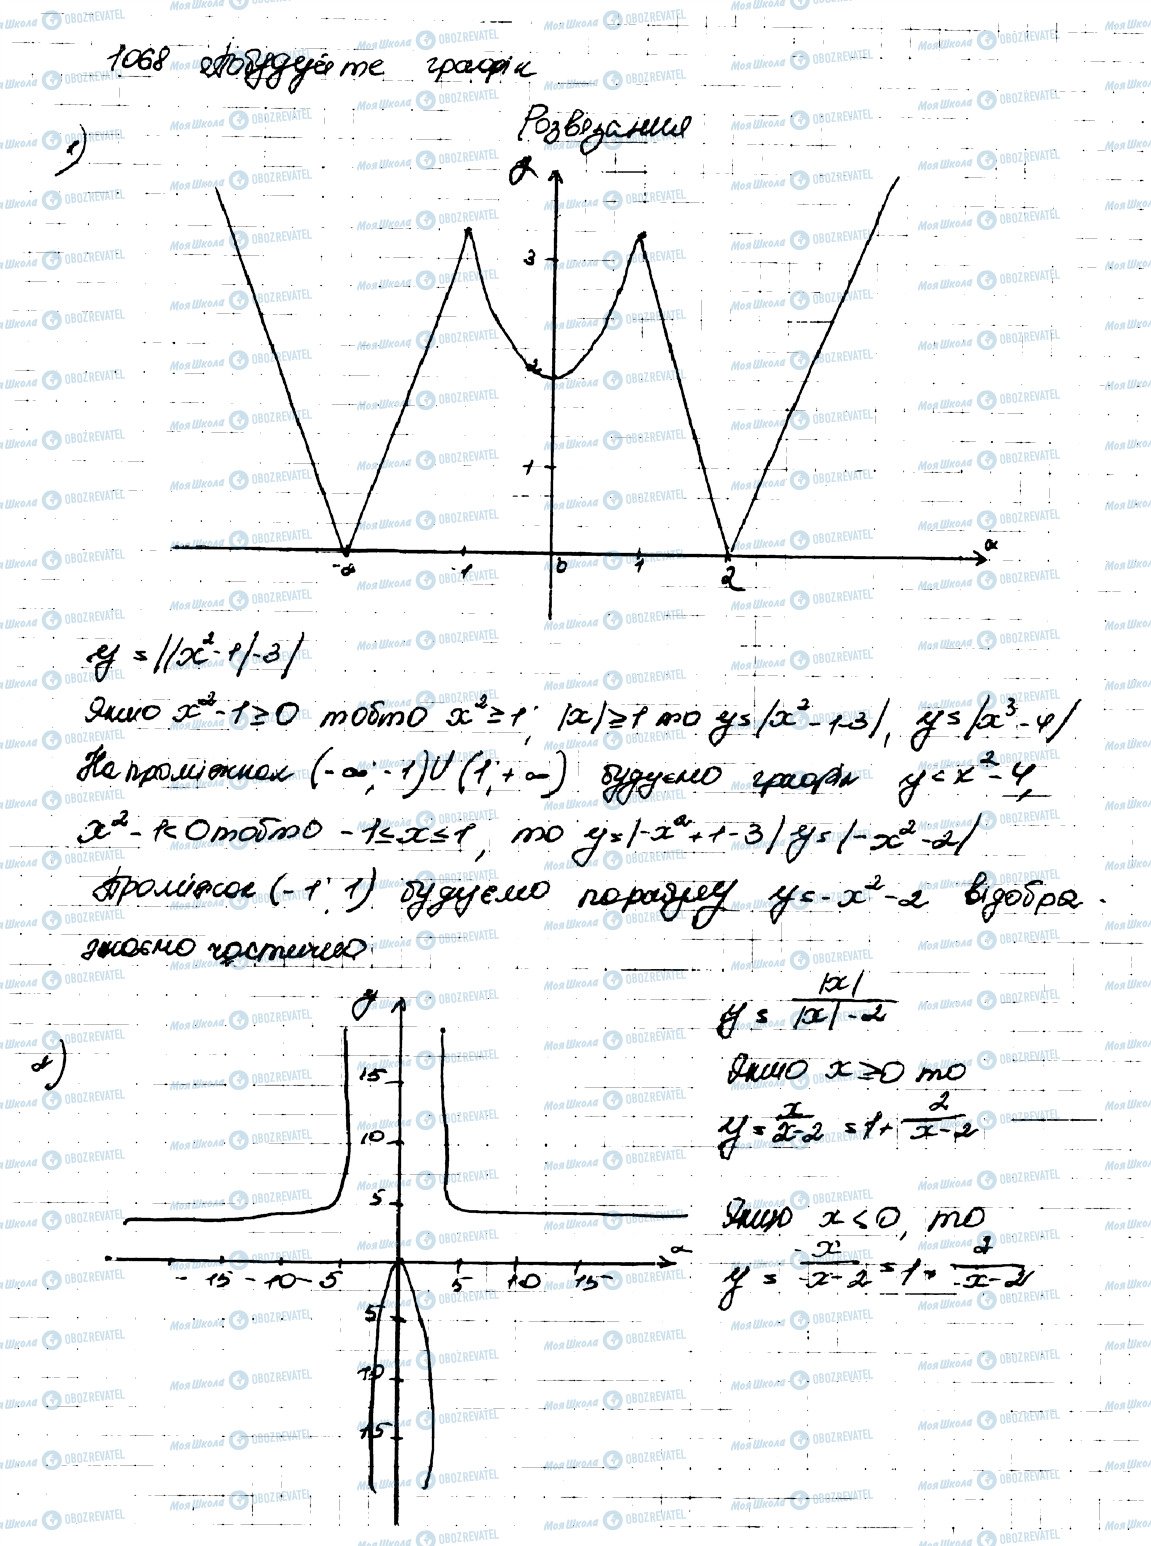 1068 Побудуйте графік
Розвязання
1)
y
3
2
1
-2 -1 0 1 2 x
y = ||x²-1|-3|
Якщо x²-1≥0 тобто x²≥1; |x|≥1 то y=|x²-1-3|, y=|x³-4|
На проміжках (-∞;-1)U(1;+∞) будуємо графік y=x²-4,
x²-1<0 тобто -1≤x≤1, то y=|-x²+1-3| y=|-x²-2|
Проміжок (-1;1) будуємо параболу y=-x²-2 відобра-
жаємо частично.
2)
y
15
10
5
-15 -10 -5 5 10 15 x
5
10
15
y = |x| / |x|-2
Якщо x≥0 то
y = x / x-2 = 1+ 2 / x-2
Якщо x<0, то
y = -x / -x-2 = 1+ 2 / -x-2